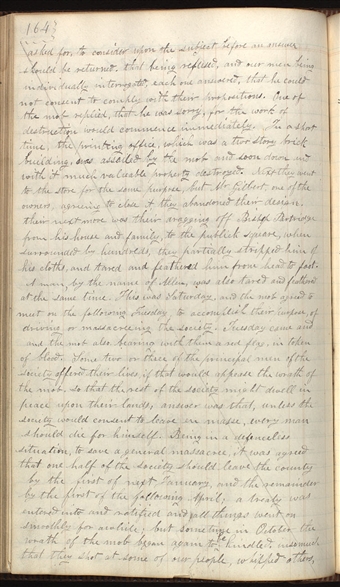 164
asked for, to consider upon the subject before an answer
should be returned, that being refused, and our men being
individually interrogated, each one answered, that he could
not consent to comply with their propositions. One of
the mob replied, that he was sorry, for the work of
destruction would commence immediately. In a short
time, the printing office, which was a two story brick
building, was assailed by the mob and soon down and
with it much valuable property destroyed. Next they went
to the store for the same purpose, but Mr Gilbert, one of the
owners, agreeing to close it they abandoned their design.
their next move was their dragging off Bishop Partridge
from his house and family, to the publick square, when
surrounded by hundreds, they partially stripped him of
his cloths, and tared and feathered him from head to foot.
A man, by the name of Allen, was also tared and feathered
at the same time. This was Saturday, and the mob agreed to
meet on the following Tuesday, to accomplish their purpose, of
driving or massacreing the society. Tuesday came and
and the mob also, bearing with them a red flag, in token
of blood. Some two or three of the principal men of the
society offered their lives, if that would appease the wrath of
the mob, so that the rest of the society might dwell in
peace upon their lands, answer was that, unless the
society would consent to leave en masse, every man
should die for himself. Being in a defenceless
situation, to save a general massacre, it was agreed
that one half of the society should leave the county
by the first of next January, and the remainder
by the first of the following April; a treaty was
entered into and ratified and all things went on
smoothly for awhile; but sometime in October the
wrath of the mob began again to be kindled insomuch
that they shot at some of our people, whipped others,